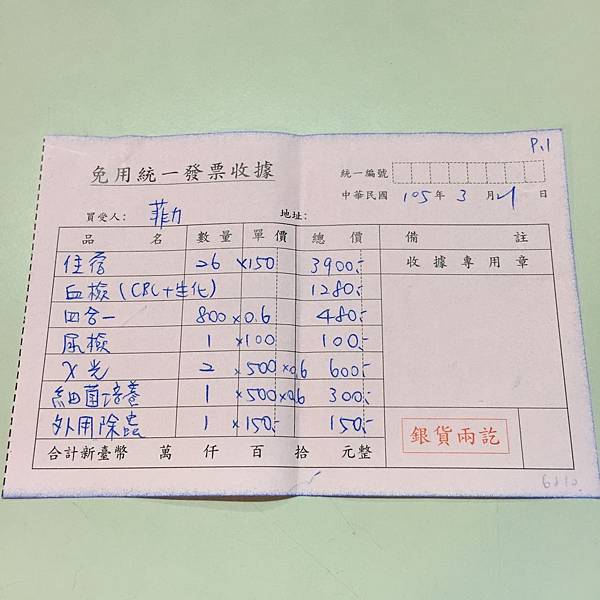 P.1
免用統一發票收據
統一編號
中華民國 105 年 3 月 21 日
買受人: 菲力 地址:
品名 數量 單價 總價 備註
住宿 26 ×150 3900.-
收據專用章
血檢(CBC+生化) 1280.-
四合一 800 ×0.6 480.-
尿檢 1 ×100 100.-
X光 2 ×500 ×0.6 600.-
細菌培養 1 ×500 ×0.6 300.-
外用除蟲 1 ×150.- 150.-
銀貨兩訖
合計新臺幣 萬 仟 百 拾 元整
6810.